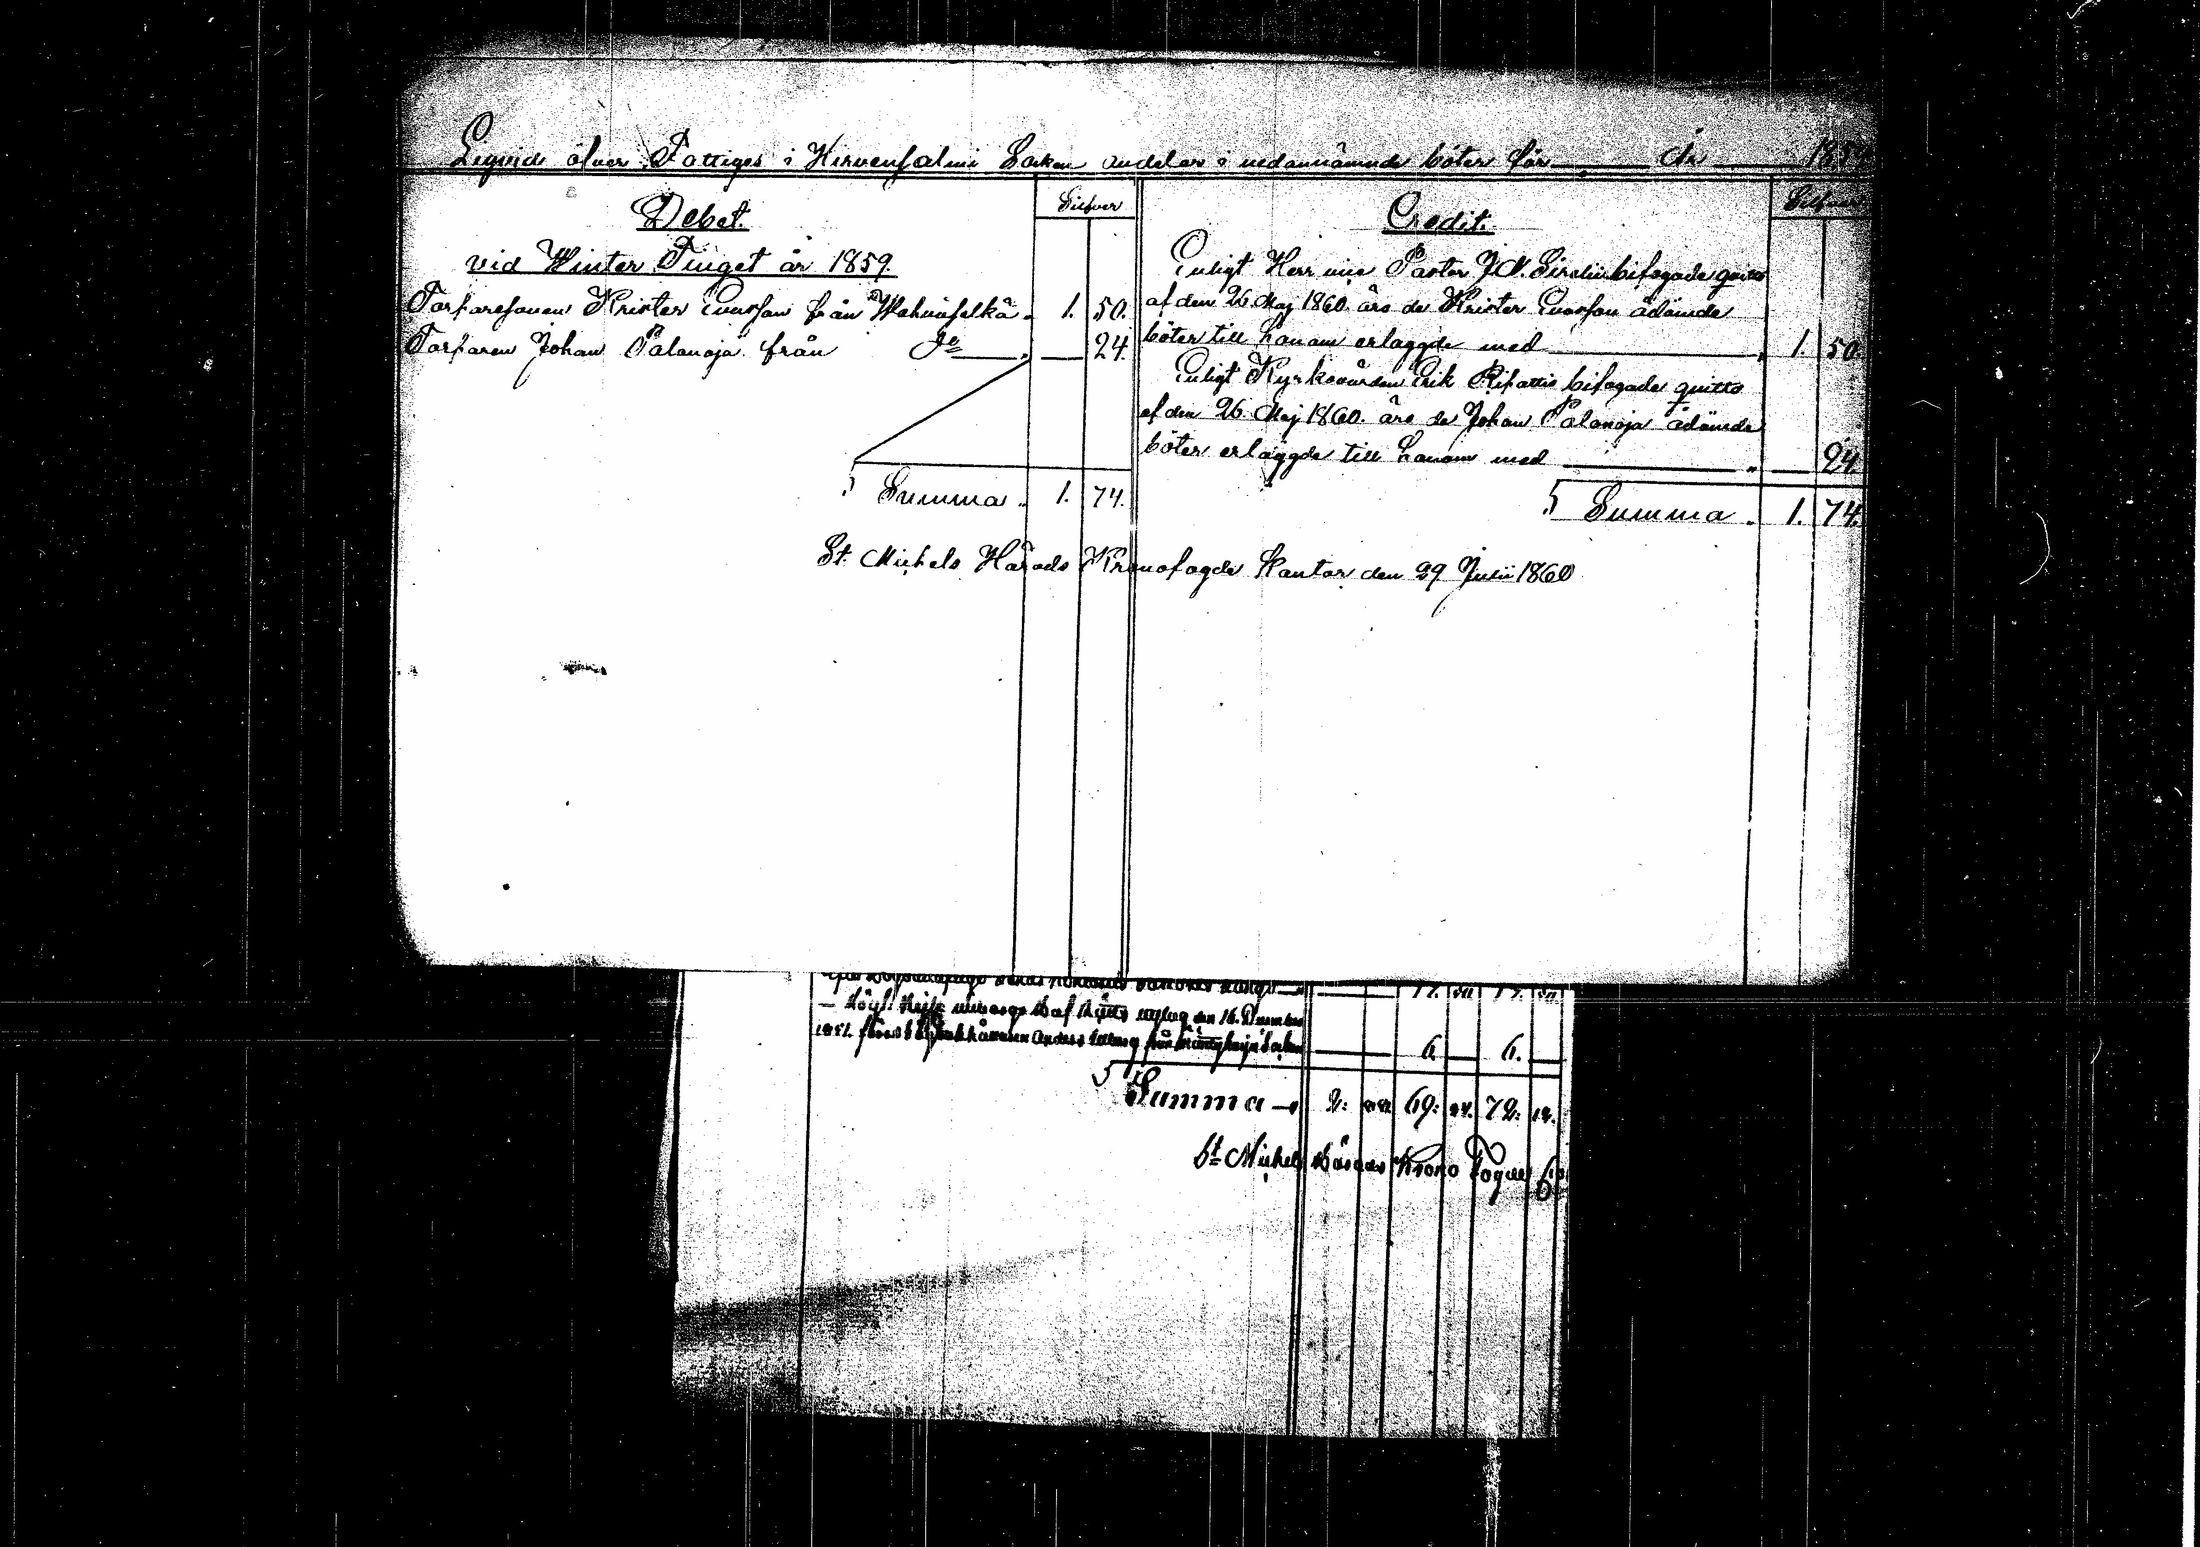 Liqvid öfver Fattiges i Hirvensalmi Socken andelar i nedannämnde böter för År 1859
Debet. Silfver
vid Winter Tinget år 1859.
Torparesonen Krister Evarsson från Wahvaselkä 1. 50.
Torparen Johan Palanoja från Do 24.
Summa 1. 74.
Credit. Silfver
Enligt Herr vice Pastor J. N. Sirelii bifogade qvitto
af den 26 Maj 1860 äro de Krister Evarsson ådömde
böter till honom erlaggde med 1. 50.
Enligt Kyrkovärden Erik Ripattis bifogade qvitto
af den 26 Maj 1860. äro de Johan Palanoja ådömde
böter erläggde till honom med 24
Summa 1. 74.
St. Michels Härads Kronofogde Kontor den 29 Julii 1860
17. 17.
den 16. December
6. 6.
Summa 2. 69. 24. 72. 12.
St Michels Härads Krono Fogde